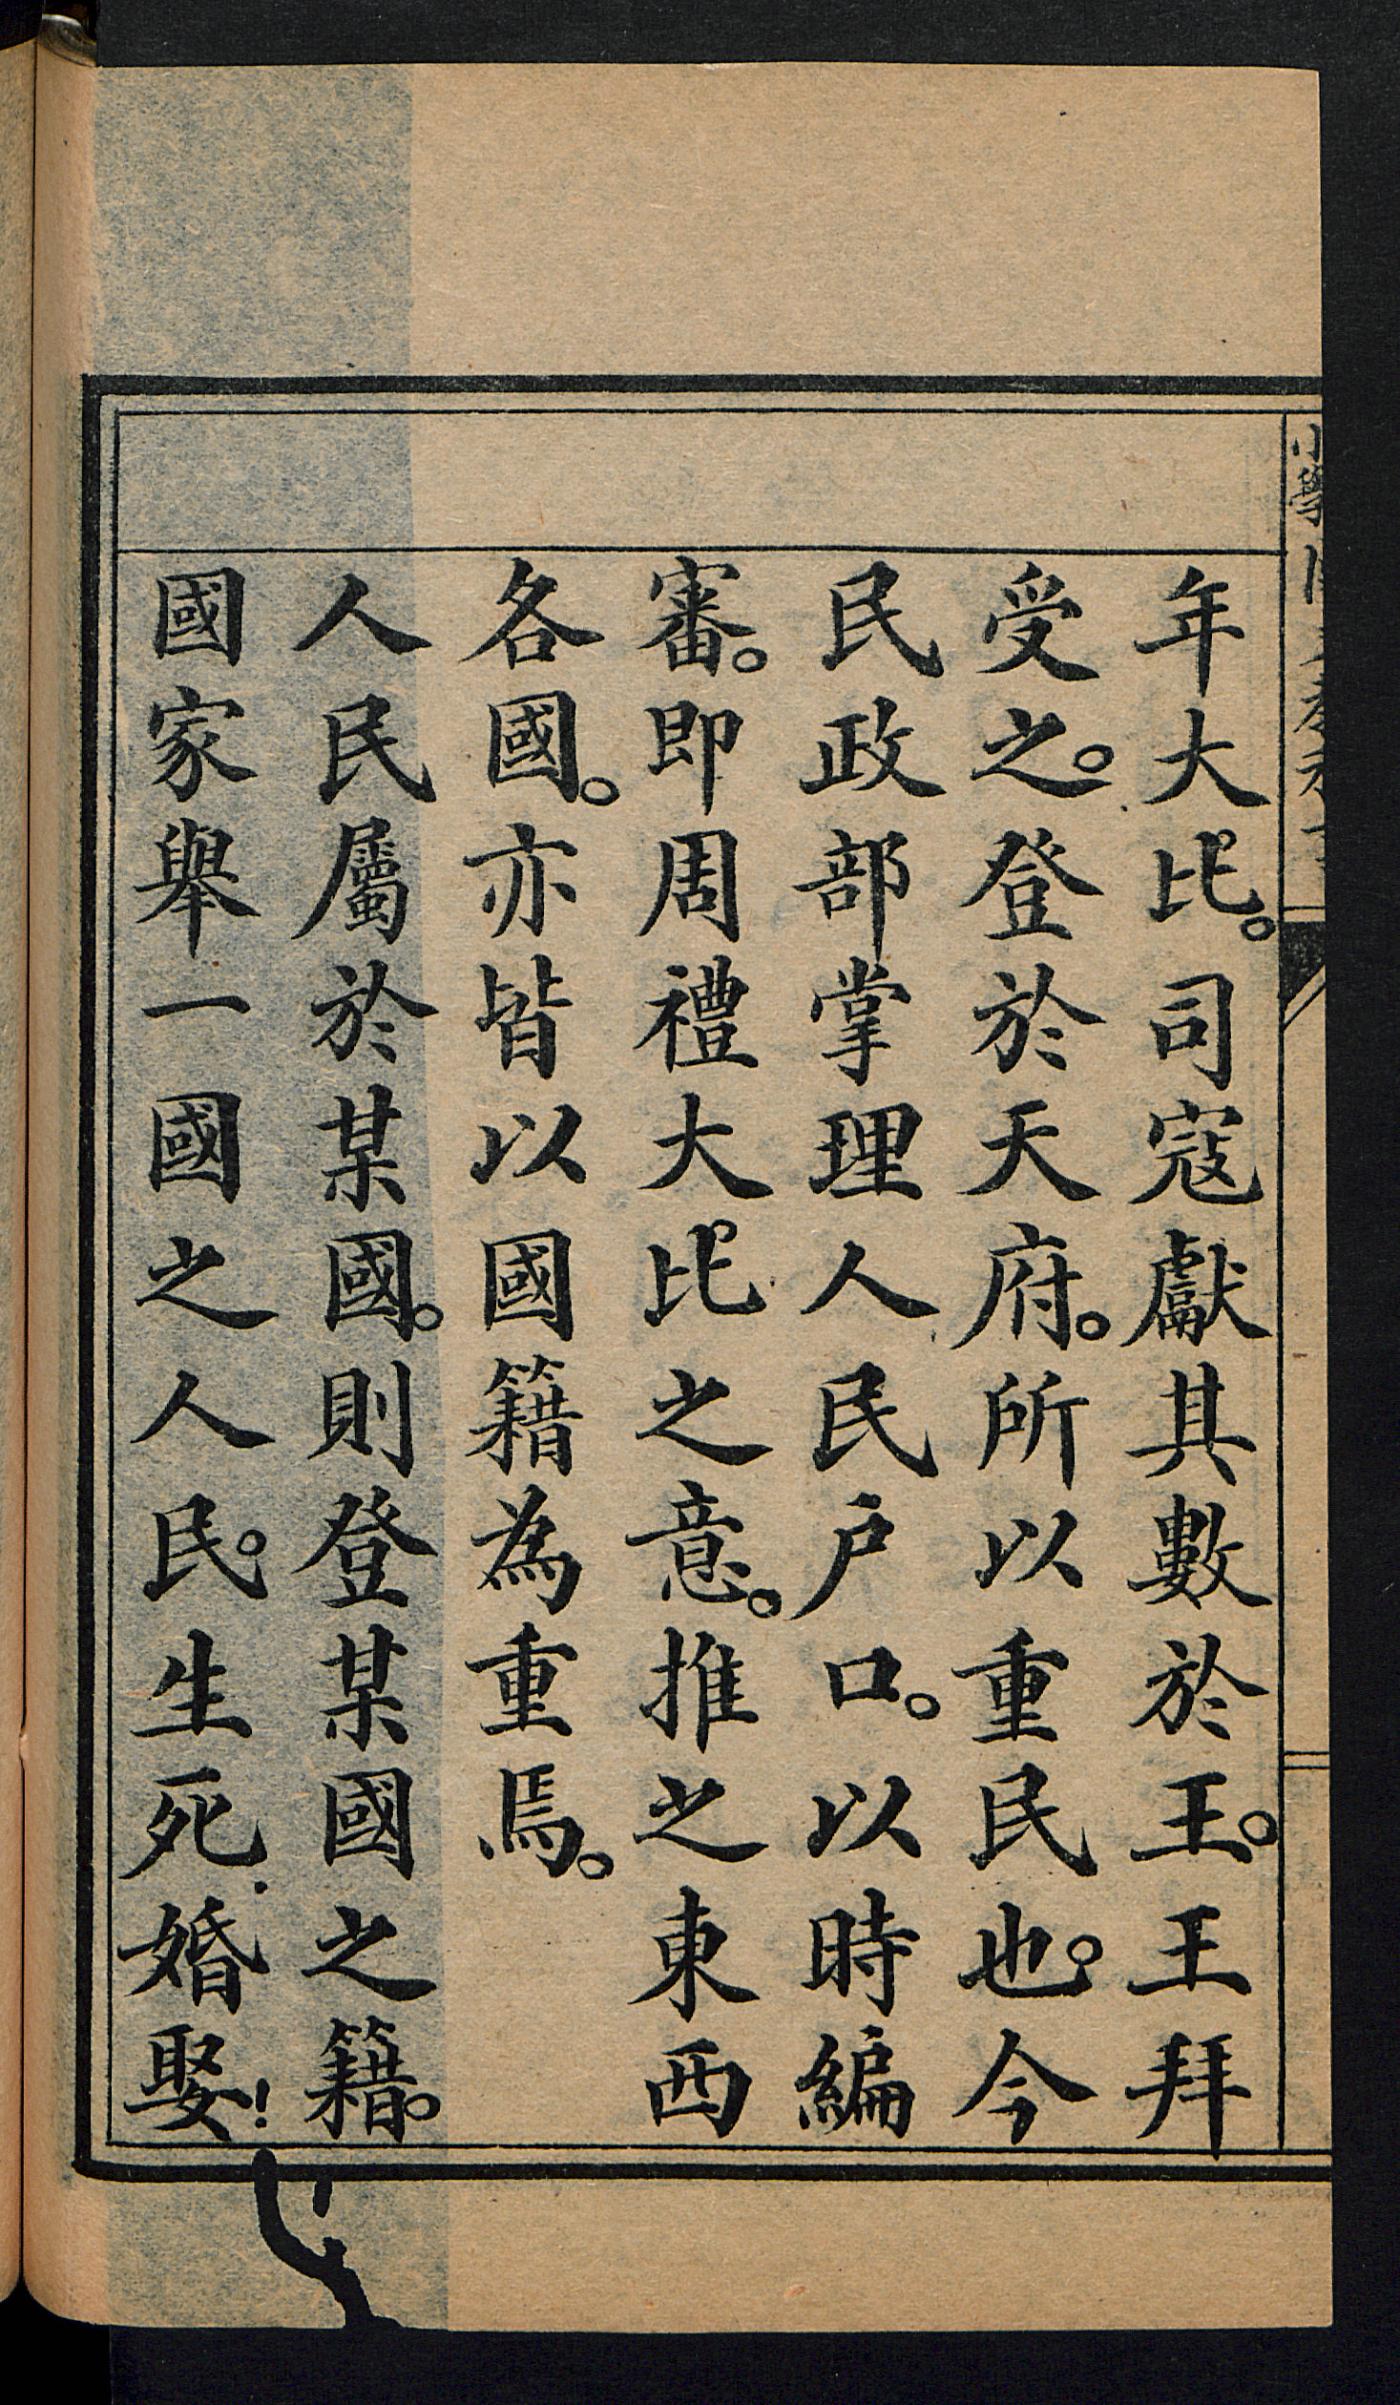 年大比。司寇獻其數於王。王拜
受之。登於天府。所以重民也。今
民政部掌理人民户口。以時編
審。即周禮大比之意。推之東西
各國。亦皆以國籍為重焉。
人民屬於某國。則登某國之籍。
國家舉一國之人民。生死婚娶